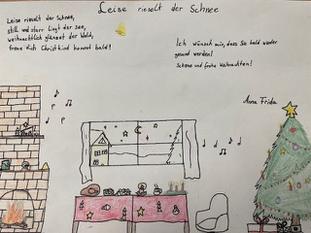 Leise rieselt der Schnee
Leise rieselt der Schnee,
still und starr liegt der See,
weihnachtlich glänzet der Wald,
freue dich Christkind kommt bald!
Ich wünsch mir, dass Sie bald wieder
gesund werden!
Schöne und frohe Weihnachten!
Anna Frida